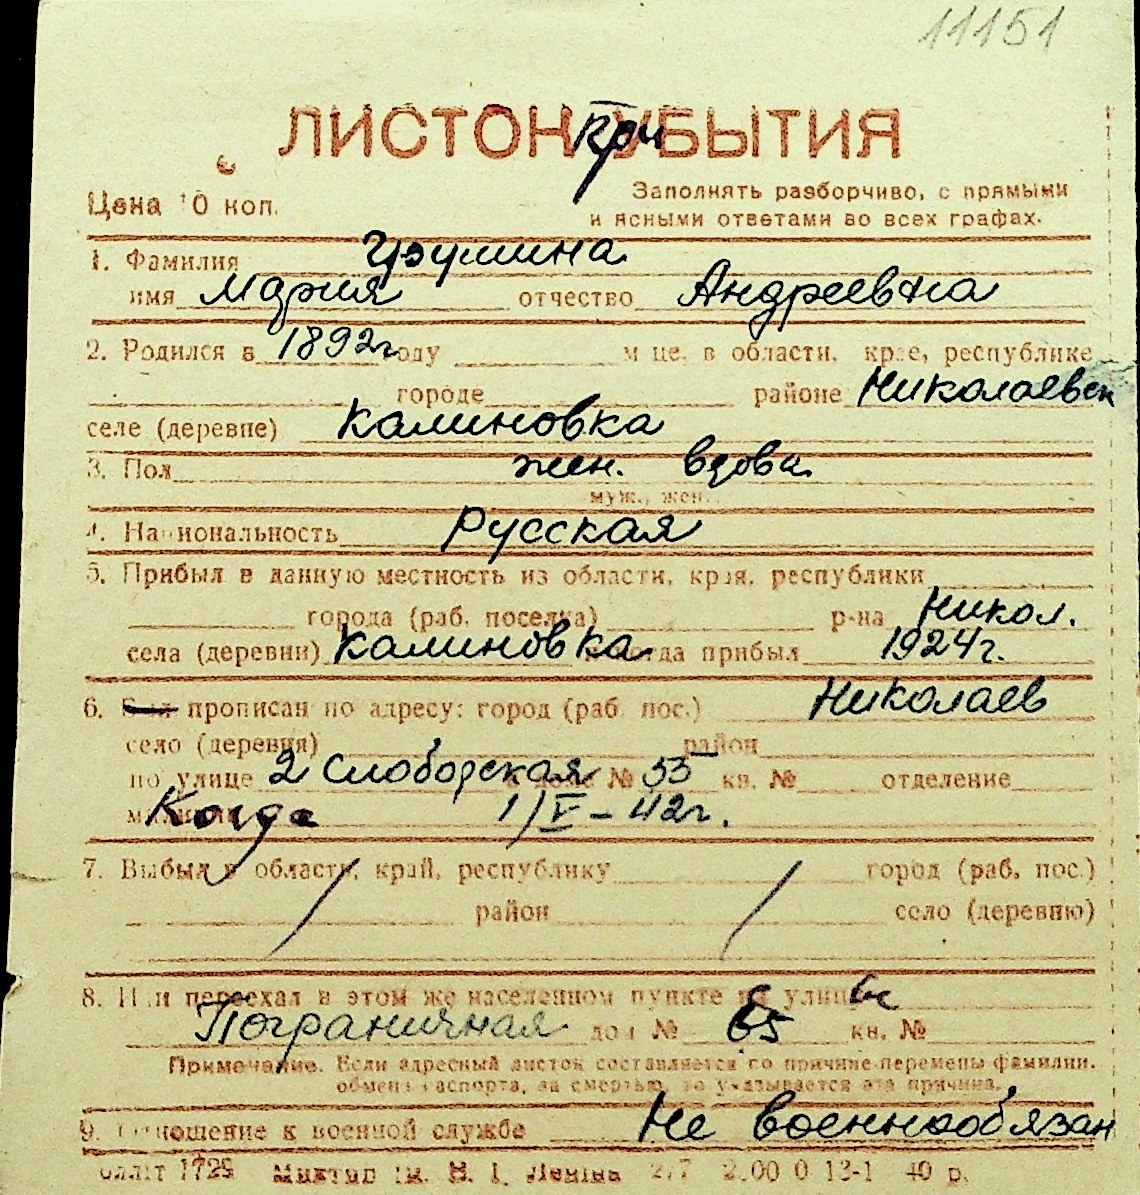 11151
ЛИСТОК УБЫТИЯ
При
Цена 10 коп.
Заполнять разборчиво, с прямыми
и ясными ответами во всех графах.
1. Фамилия
имя Мария отчество Андреевна
2. Родился в 1892г году м-це, в области, крае, республике
городе районе Николаевск
селе (деревне) Калиновка
3. Пол жен. вдова
муж., жен.
4. Национальность Русская
5. Прибыл в данную местность из области, края, республики
города (раб. поселка) р-на Никол.
села (деревни) Калиновка когда прибыл 1924г.
6. прописан по адресу: город (раб. пос.) Николаев
село (деревня) район
по улице 2 Слободская в доме № 55 кв. № отделение
милиции Когда 1/V-42г.
7. Выбыл в область, край, республику город (раб. пос.)
район село (деревню)
8. Или переехал в этом же населенном пункте на улицу
Пограничная дом № 65 кв. №
Примечание. Если адресный листок составляется по причине перемены фамилии,
обмена паспорта, за смертью, то указывается эта причина.
9. Отношение к военной службе Не военнообязан
1729 ім. В. І. Леніна 2.00 0 13-1 40 р.